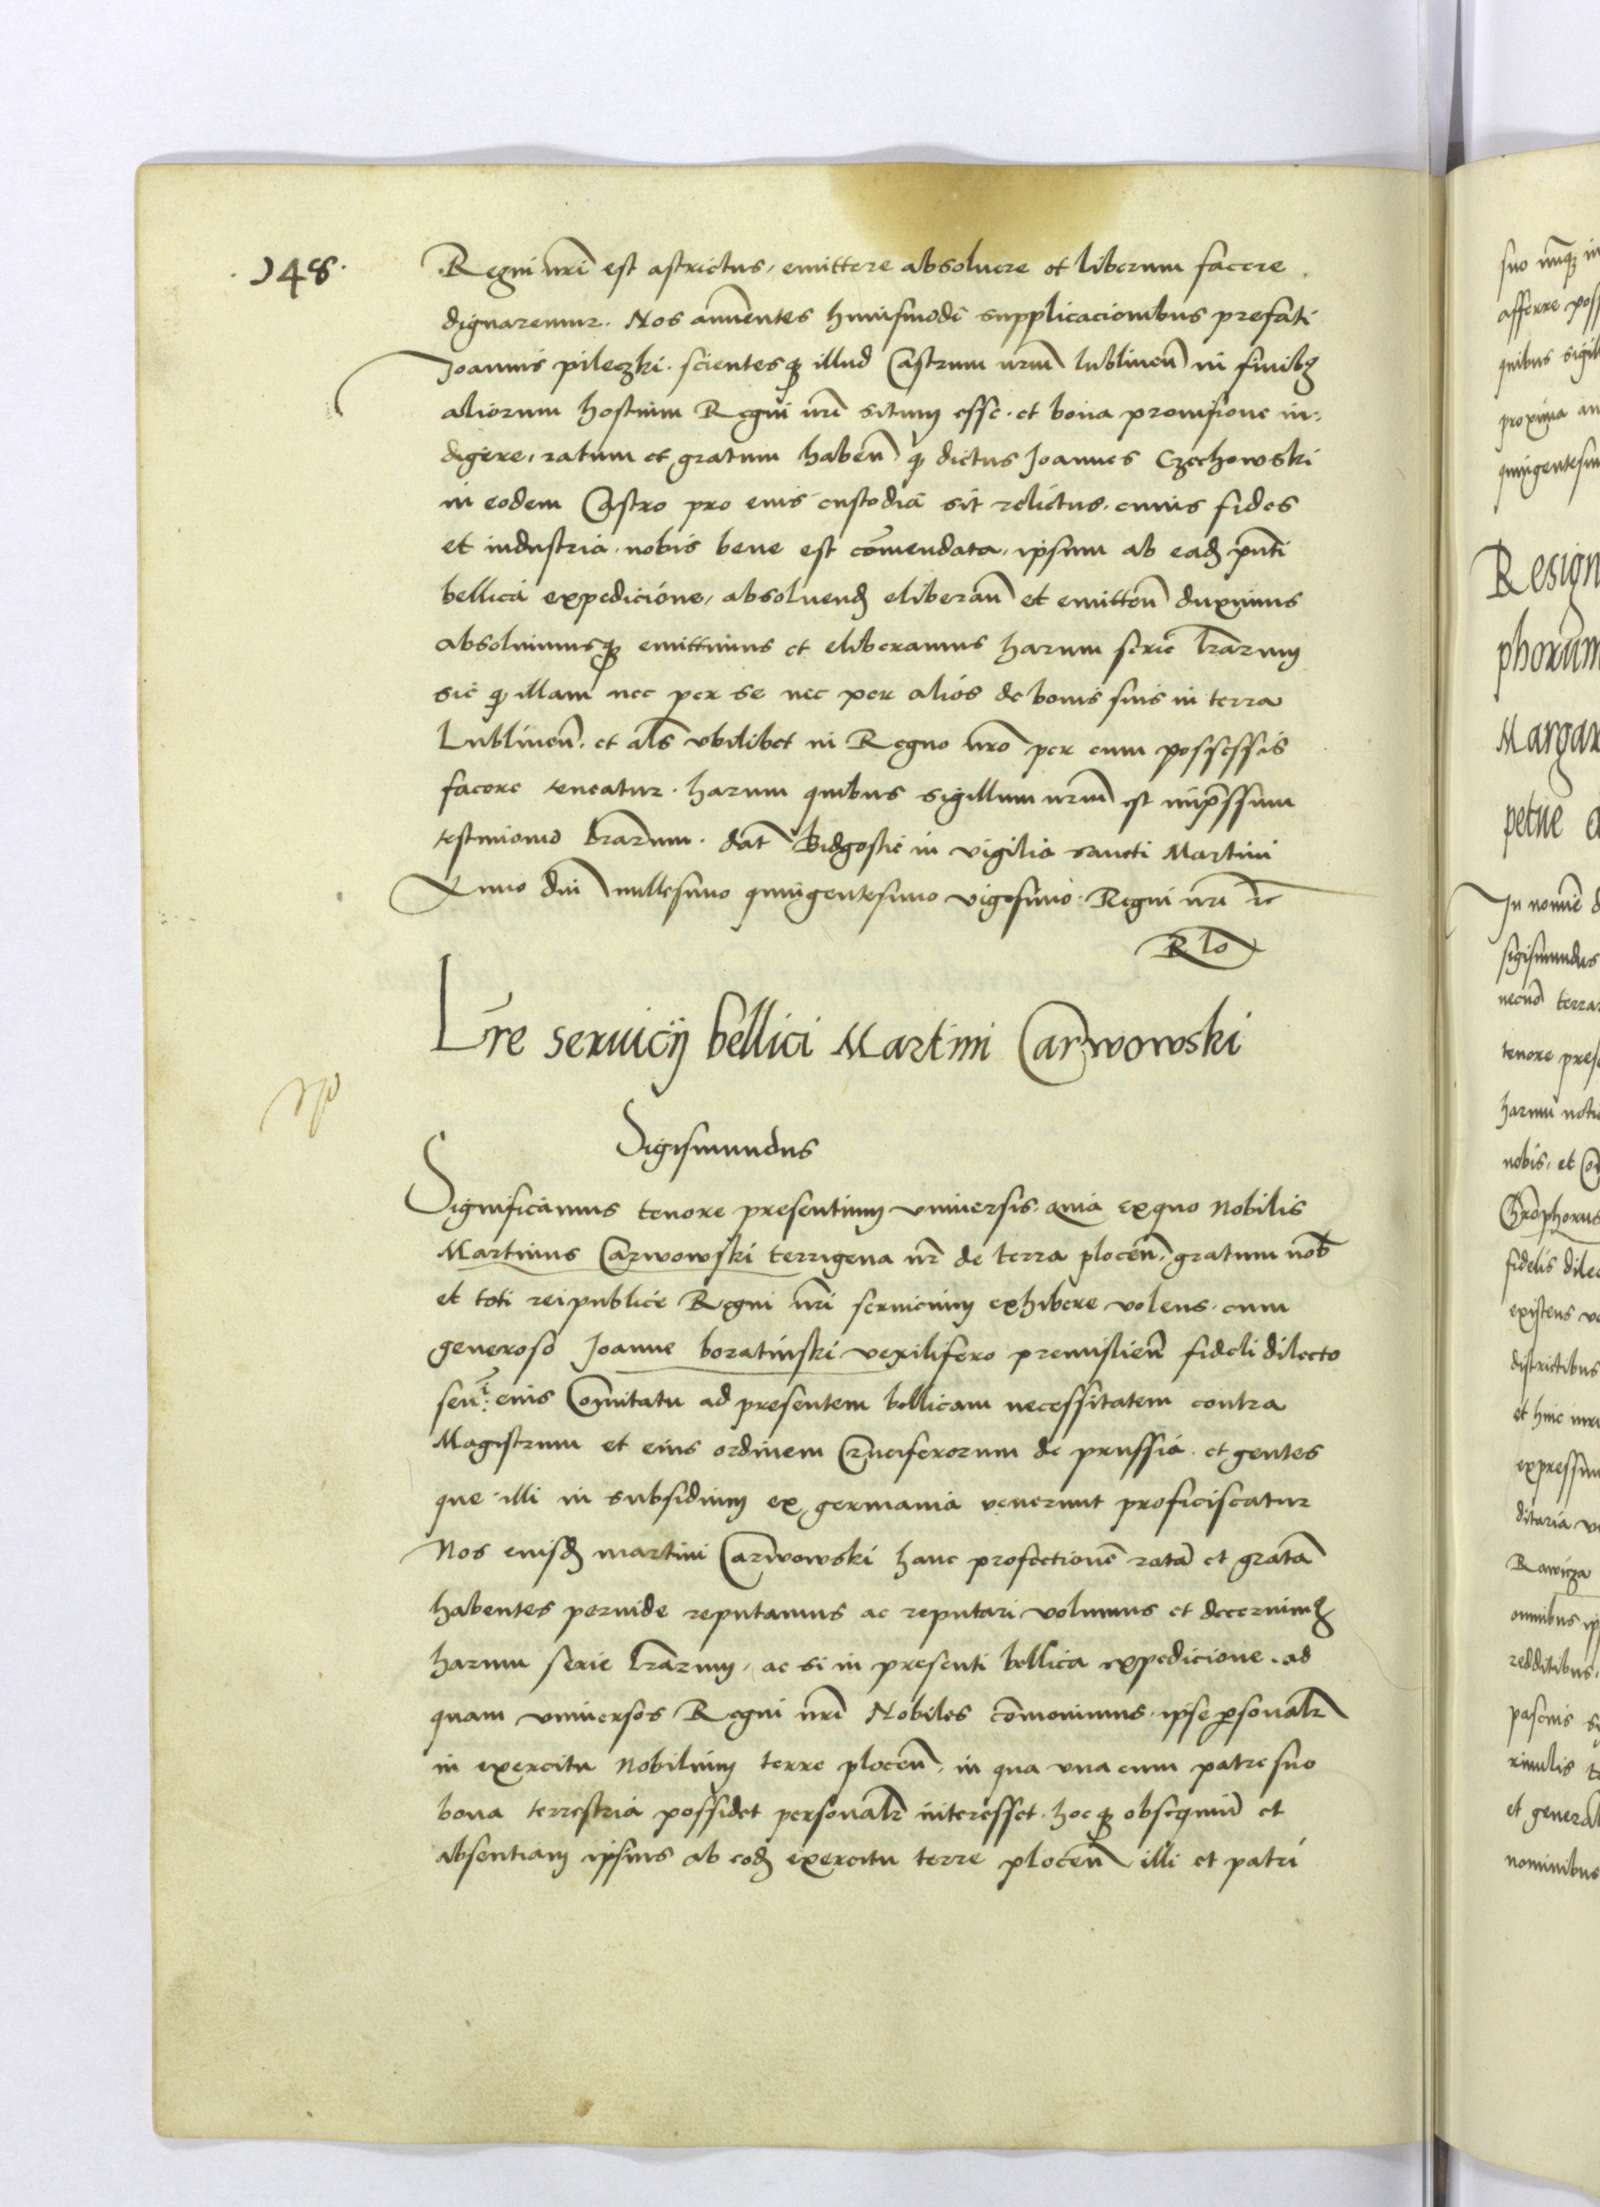 .148.
Regni nri est astrictus, emittere absoluere et liberum facere
dignaremur. Nos annuentes huiusmodi supplicacionibus prefati
Joannis pileczki. scientesqꝫ illud Castrum nrum lublinen in finibꝫ
aliorum hostium Regni nri situm esse. et bona prouisione in-
digere, ratum et gratum haben qꝫ dictus Joannes Czechowski
in eodem Castro pro eius custodia sit relictus. cuius fides
et industria nobis bene est comendata, ipsum ab eadꝫ pnti
bellica expedicione, absoluendꝫ eliberan et emitten duximus
absoluimusqꝫ emittimus et eliberamus harum serie lrarum
sic qꝫ illam nec per se nec per alios de bonis suis in terra
Lublinen. et als vbilibet in Regno nro per eum possessis
facere teneatur. harum quibus sigillum nrum est impssum
testimonio lrarum. dat Bidgostie in vigilia sancti Martini
Anno dni millesimo quingentesimo vigesimo. Regni nri ꝛc
Lre seruicij bellici Martini Carwowski
Sigismundus
Significamus tenore presentium vniuersis. quia exquo Nobilis
Martinus Carwowski terrigena nr de terra plocen, gratum nob
et toti reipublice Regni nri seruicium exhibere volens. cum
generoso Joanne boratinski vexilifero premislien fideli dilecto
seu: i eius Comitatu ad presentem bellicam necessitatem contra
Magistrum et eius ordinem Cruciferorum de prussia. et gentes
que illi in subsidium ex germania venerunt proficiscatur
Nos eiusdꝫ martini Carwowski hanc profectione rata et grata
habentes perinde reputamus ac reputari volumus et decernimꝫ
harum serie lrarum, ac si in presenti bellica expedicione. ad
quam vniuersos Regni nri Nobiles comonimus. ipse psonalr
in exercitu Nobilium terre plocen, in qua vna cum patre suo
bona terrestria possidet personalr interesset. hocqꝫ obsequiu et
absentiam ipsius ab eodꝫ exercitu terre plocen illi et patri
suo
afferre
quibus
proxima
Resign
phorum
Margar
petue
In nomie
sigismundus
necno terra
tenore
nobis. et
fidelis
existens
districtibus
et
Rawicza
omnibus
redditibus,
pascuis
et
nominibus